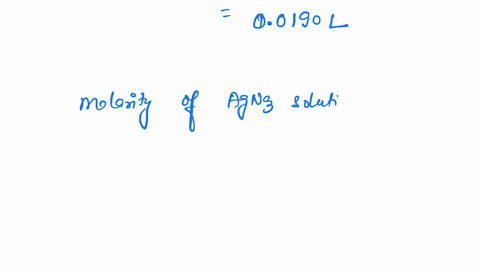 = 0.0190 L
molarity of AgN3 soluti